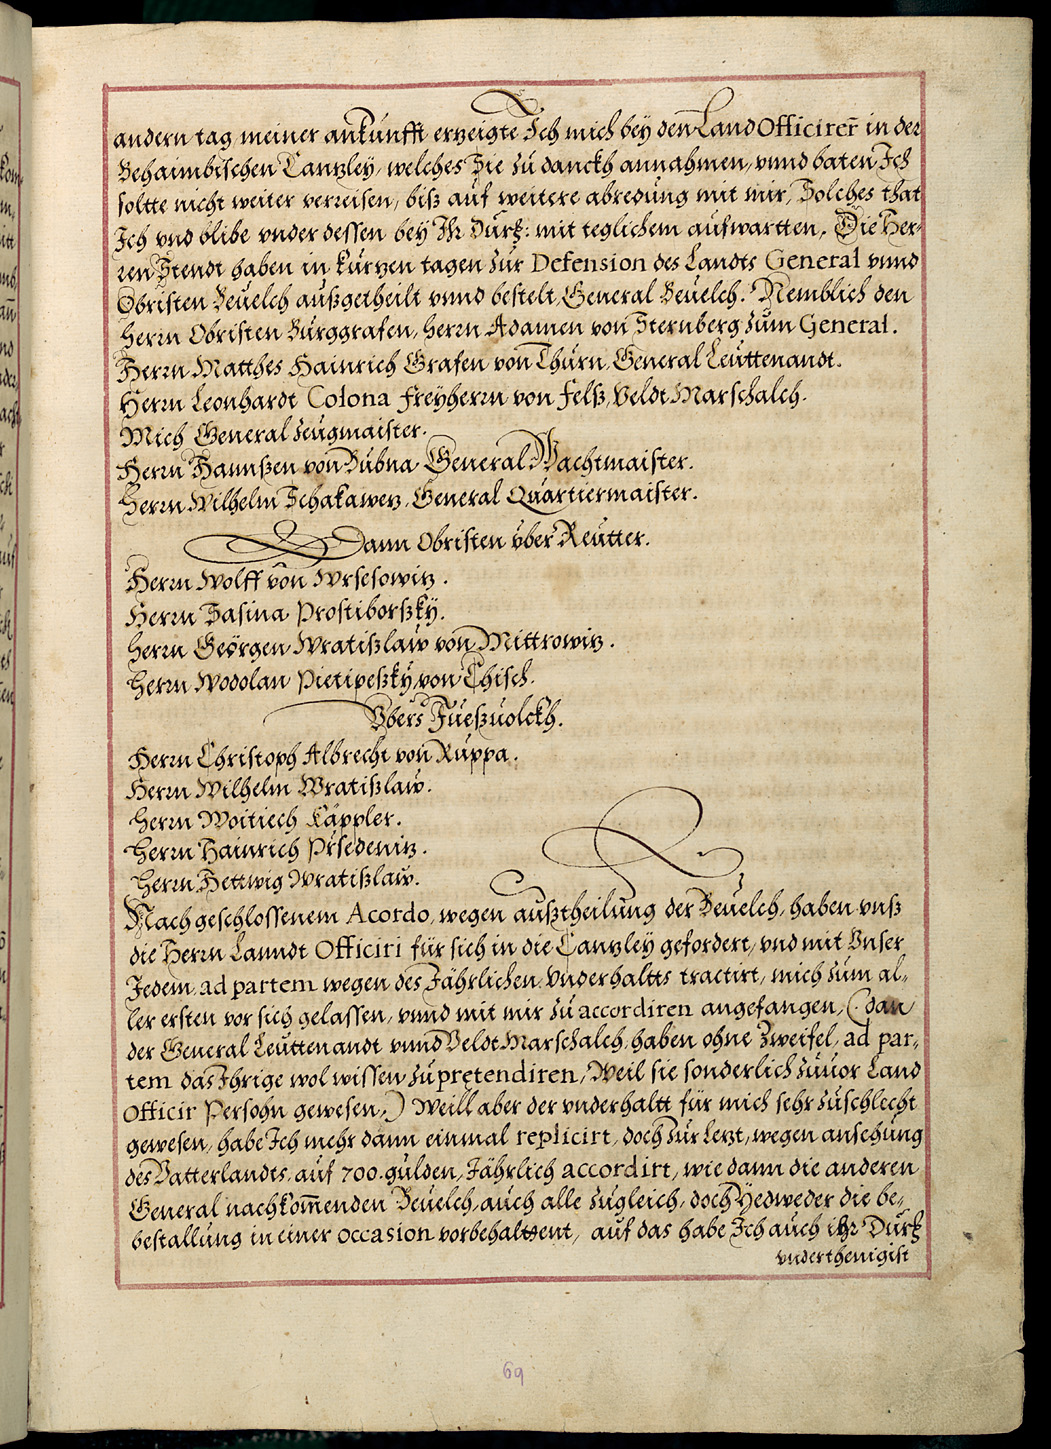 andern tag meiner ankunfft erzeigte Ich mich bey den Land Officirer̃ in der
Behaimbischen Canzley, welches Sie zu danckh annahmen, vnnd baten Ich
soltte nicht weiter verreisen, biß auf weitere abredung mit mir, Solches that
Ich vnd blibe vnder dessen bey Ihr Durl: mit teglichem aufwartten, Die Her-
ren Stendt haben in kurzen tagen zur Defension des Landts General vnnd
Obristen Beuelch außgetheilt vnnd bestelt, General Beuelch. Nemblich den
Herrn Obristen Burggrafen, Herrn Adamen von Sternberg zum General.
Herrn Matthes Hainrich Grafen von Thurn, General Leuttenandt.
Herrn Leonhardt Colona Freyherrn von Felß, Veldt Marschalch.
Mich General Zeugmaister.
Herrn Hannßen von Bubna General Wachtmaister.
Herrn Wilhelm Schakawez, General Quartiermaister.
Dann Obristen vber Reutter.
Herrn Wolff von Wrsesowiz.
Herrn Sasina Prostiborßky.
Herrn Georgen Wratißlaw von Mittrowiz.
Herrn Wodolan Pietipeßky von Chisch.
Vbers Fueßuolckh.
Herrn Christoph Albrecht von Ruppa.
Herrn Wilhelm Wratißlaw.
Herrn Woitiech Cappler.
Herrn Hainrich Prsedeniz.
Herrn Hettwig Wratißlaw.
Nach geschlossenem Acordo, wegen außtheilung der Beuelch, haben vnß
die Herrn Lanndt Officiri für sich in die Canzley gefordert, vnd mit Vnser
Jedem, ad partem wegen des Jährlichen Vnderhaltts tractirt, mich zum al-
ler ersten vor sich gelassen, vnnd mit mir zu accordiren angefangen, (dan
der General Leuttenandt vnnd Veldt Marschalch, haben ohne Zweifel, ad par-
tem das Ihrige wol wissen zu pretendiren, Weil sie sonderlich zuuor Land
Officir Persohn gewesen,) Weill aber der vnderhaltt für mich sehr zuschlecht
gewesen, habe Ich mehr dann einmal replicirt, doch zur lezt, wegen ansehung
des Vatterlandts, auf 700. gulden, Jährlich accordirt, wie dann die anderen
General nachkom̃enden Beuelch, auch alle zugleich, doch Yedweder die be-
bestallung in einer occasion vorbehaltsent, auf das habe Ich auch ihr Durl
vnderthenigist
69